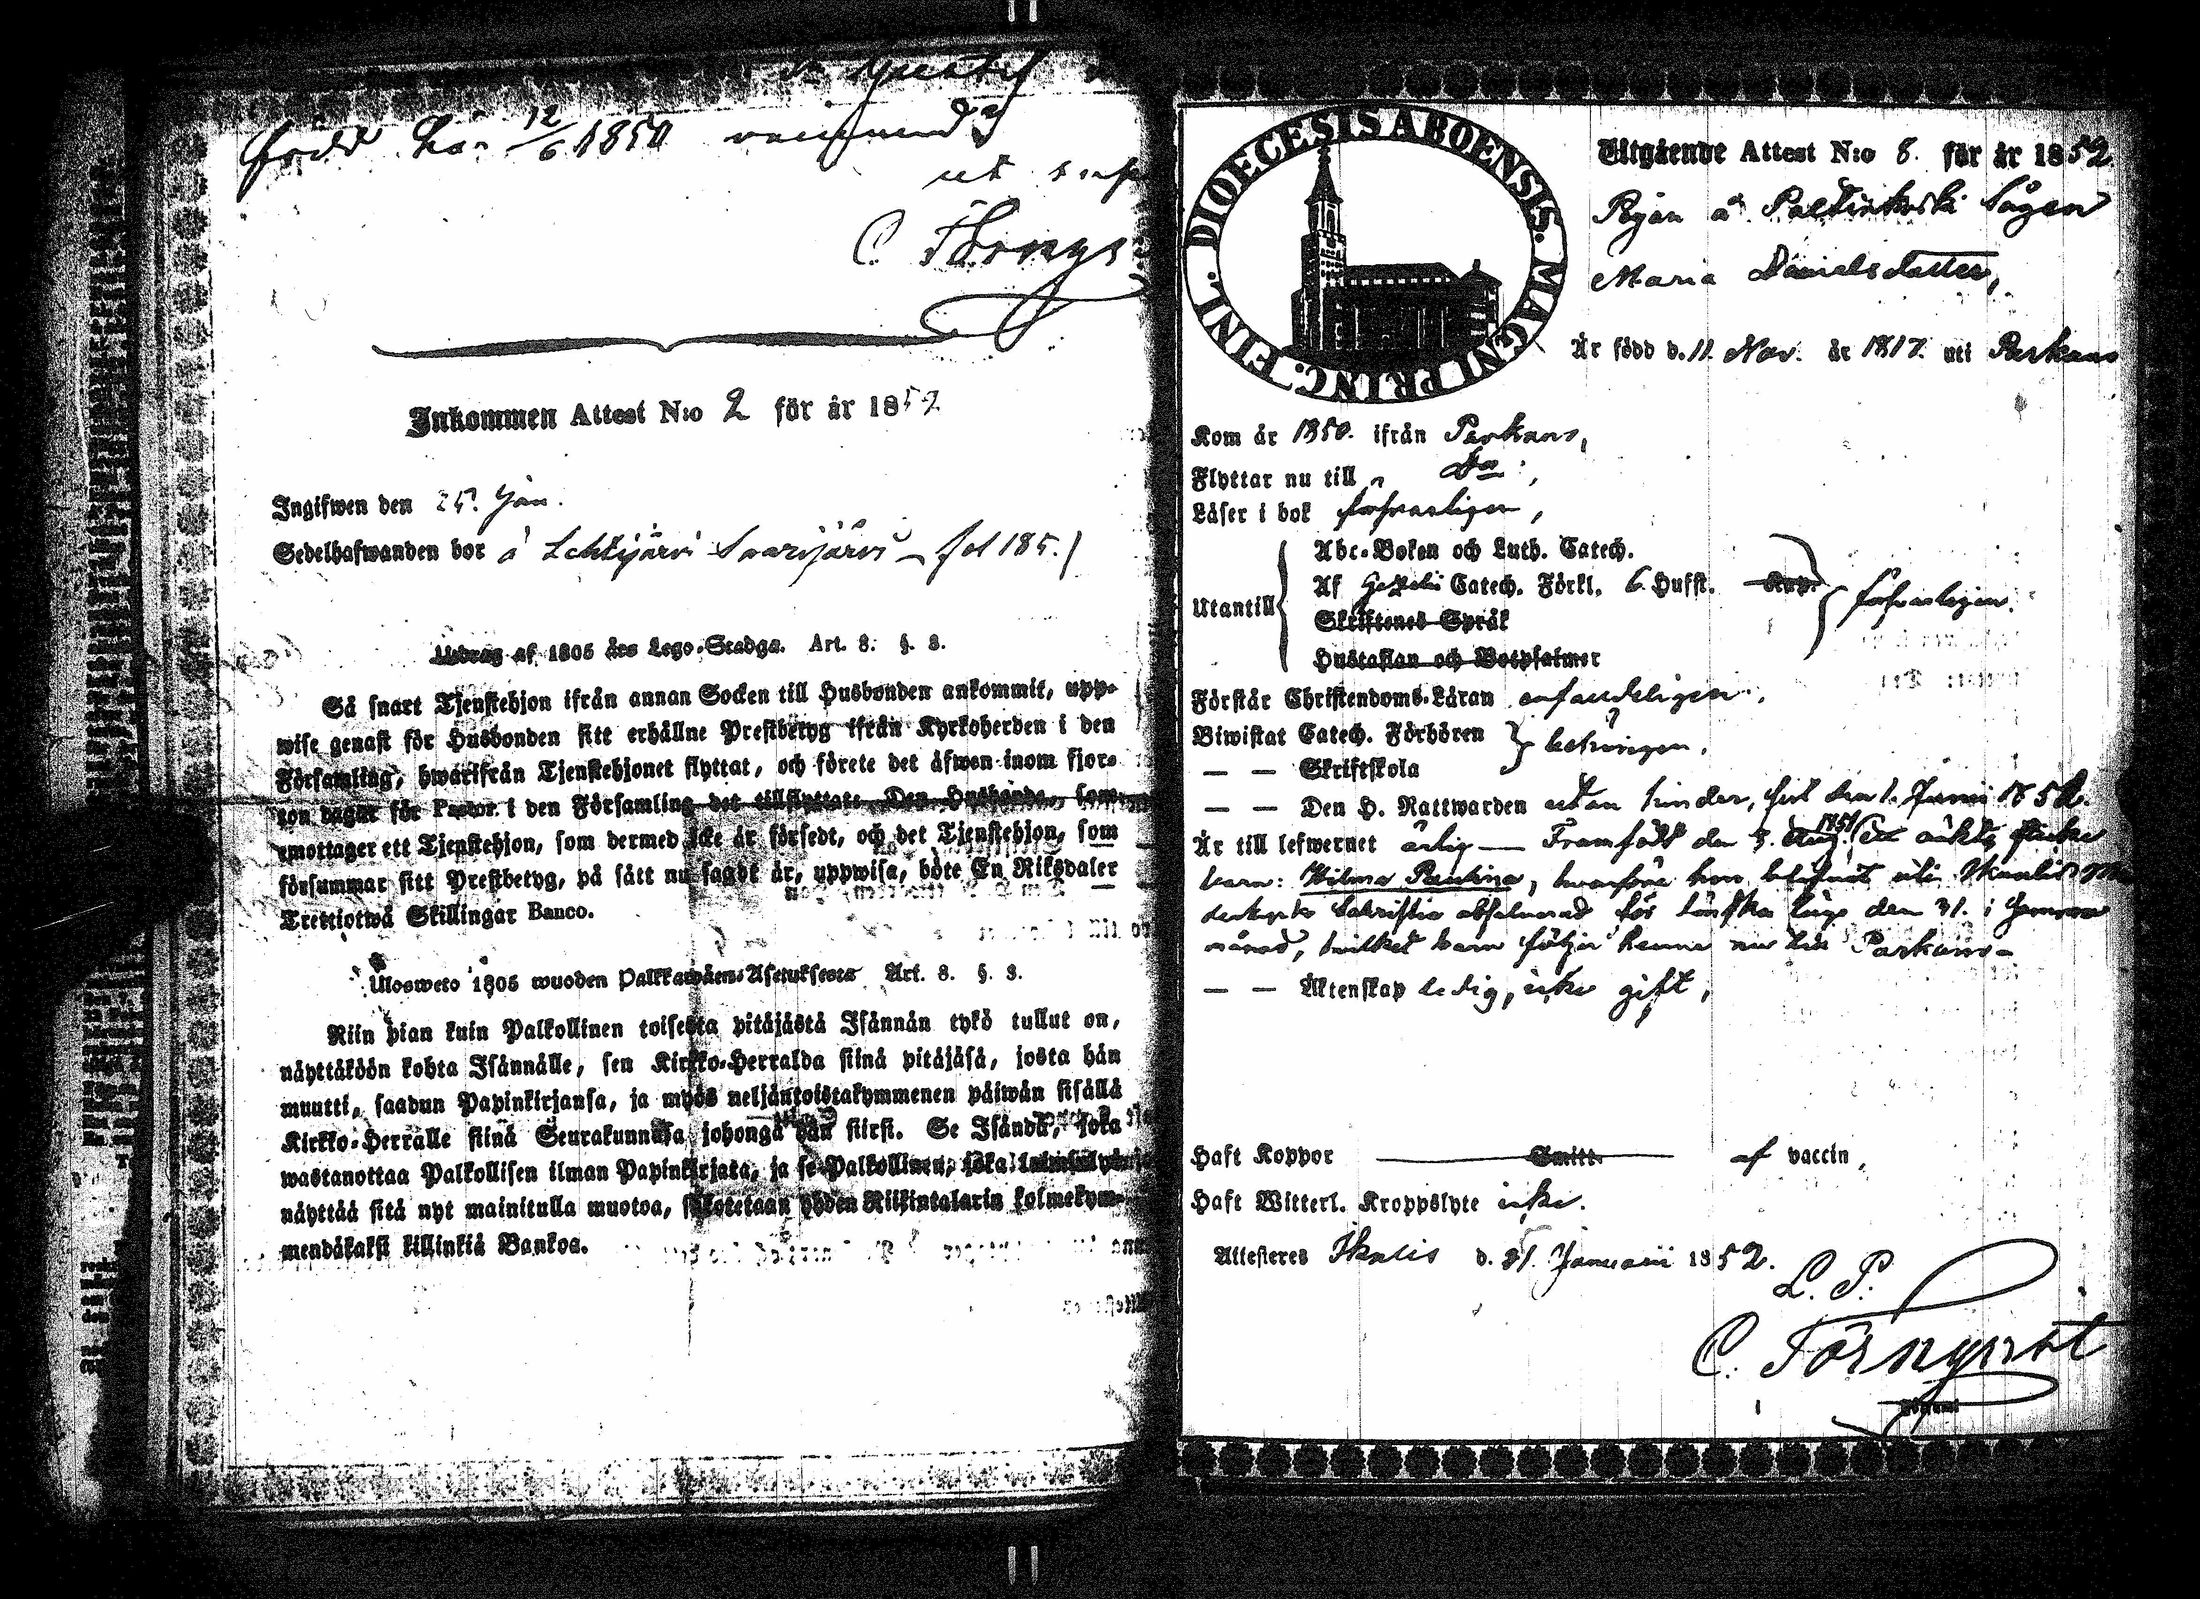 född här 12/6 1850
ut
C. Törnq
Inkommen Attest N:o 2 för år 1852
Ingifwen den 25. Jan.
Sedelhafwanden bor å Lehtijärvi Saarijärvi fol 185.)
Utdrag af 1805 års Lego-Stadga. Art. 8. §. 3.
Så snart Tjenstehjon ifrån annan Socken till Husbonden ankommit, upp-
wise genast för Husbonden sitt erhållne Prestbetyg ifrån Kyrkoherden i den
Församling, hwarifrån Tjenstehjonet flyttat, och förete det äfwen inom fjor-
ton dagar för Pastor i den Församling det tillflyttat. Den Husbonde, som
emottager ett Tjenstehjon, som dermed icke är försedt, och det Tjenstehjon, som
försummar sitt Prestbetyg, på sätt nu sagdt är, uppwisa, böte En Riksdaler
Trettiotwå Skillingar Banco.
Ulosweto 1805 wuoden Palkkawäen-Asetuksesta Art. 8. §. 3.
Niin pian kuin Palkollinen toisesta pitäjästä Isännän tykö tullut on,
näyttäköön kohta Isännälle, sen Kirkko-Herralda siinä pitäjäsä, josta hän
muutti, saadun Papinkirjansa, ja myös neljäntoistakymmenen päiwän sisällä
Kirkko-Herralle siinä Seurakunnasa johonga hän siirsi. Se Isändä, joka
wastanottaa Palkollisen ilman Papinkirjata, ja se Palkollinen, joka
näyttää sitä nyt mainitulla muotoa, sakotetaan yhden Riikintalarin kolmekym-
mendäkaksi killinkiä Bankoa.
DIOECESIS ABOENSIS. MAGNI PRINC. FINL.
Utgående Attest N:o 8. för år 1852
Pigan å Sågen
Maria Danielsdotter,
Är född d. 11. Nov. år 1817. uti Parkano
Kom år 1850. ifrån Parkano,
Flyttar nu till Do,
Läser i bok försvarligen,
Abc-Boken och Luth. Catech.
Utantill Af Catech. Förkl. 6. Hufst. Kap. försvarligen.
Skriftenes Språk
Hustaflan och Botpsalmer
Förstår Christendoms-Läran enfaldeligen,
Biwistat Catech. Förhören
— — Skriftskola
— — Den H. Nattwarden utan hinder, först den 1. Junii 1851.
Är till lefwernet ärlig — Framfödt den 3. Aug. 1851 ett oäkta flicke
barn: Wilma Paulina, hvarföre hon blifwit uti Ikalis
den 31. i Januarii
månad, hwilket barn följer henne nu till Parkano
— — Äktenskap ledig, icke gift,
Haft Koppor Smitt. af vaccin,
Haft Witterl. Kroppslyte icke.
Attesteres Ikalis d. 31. Januarii 1852.
L. P.
C. Törnqvist